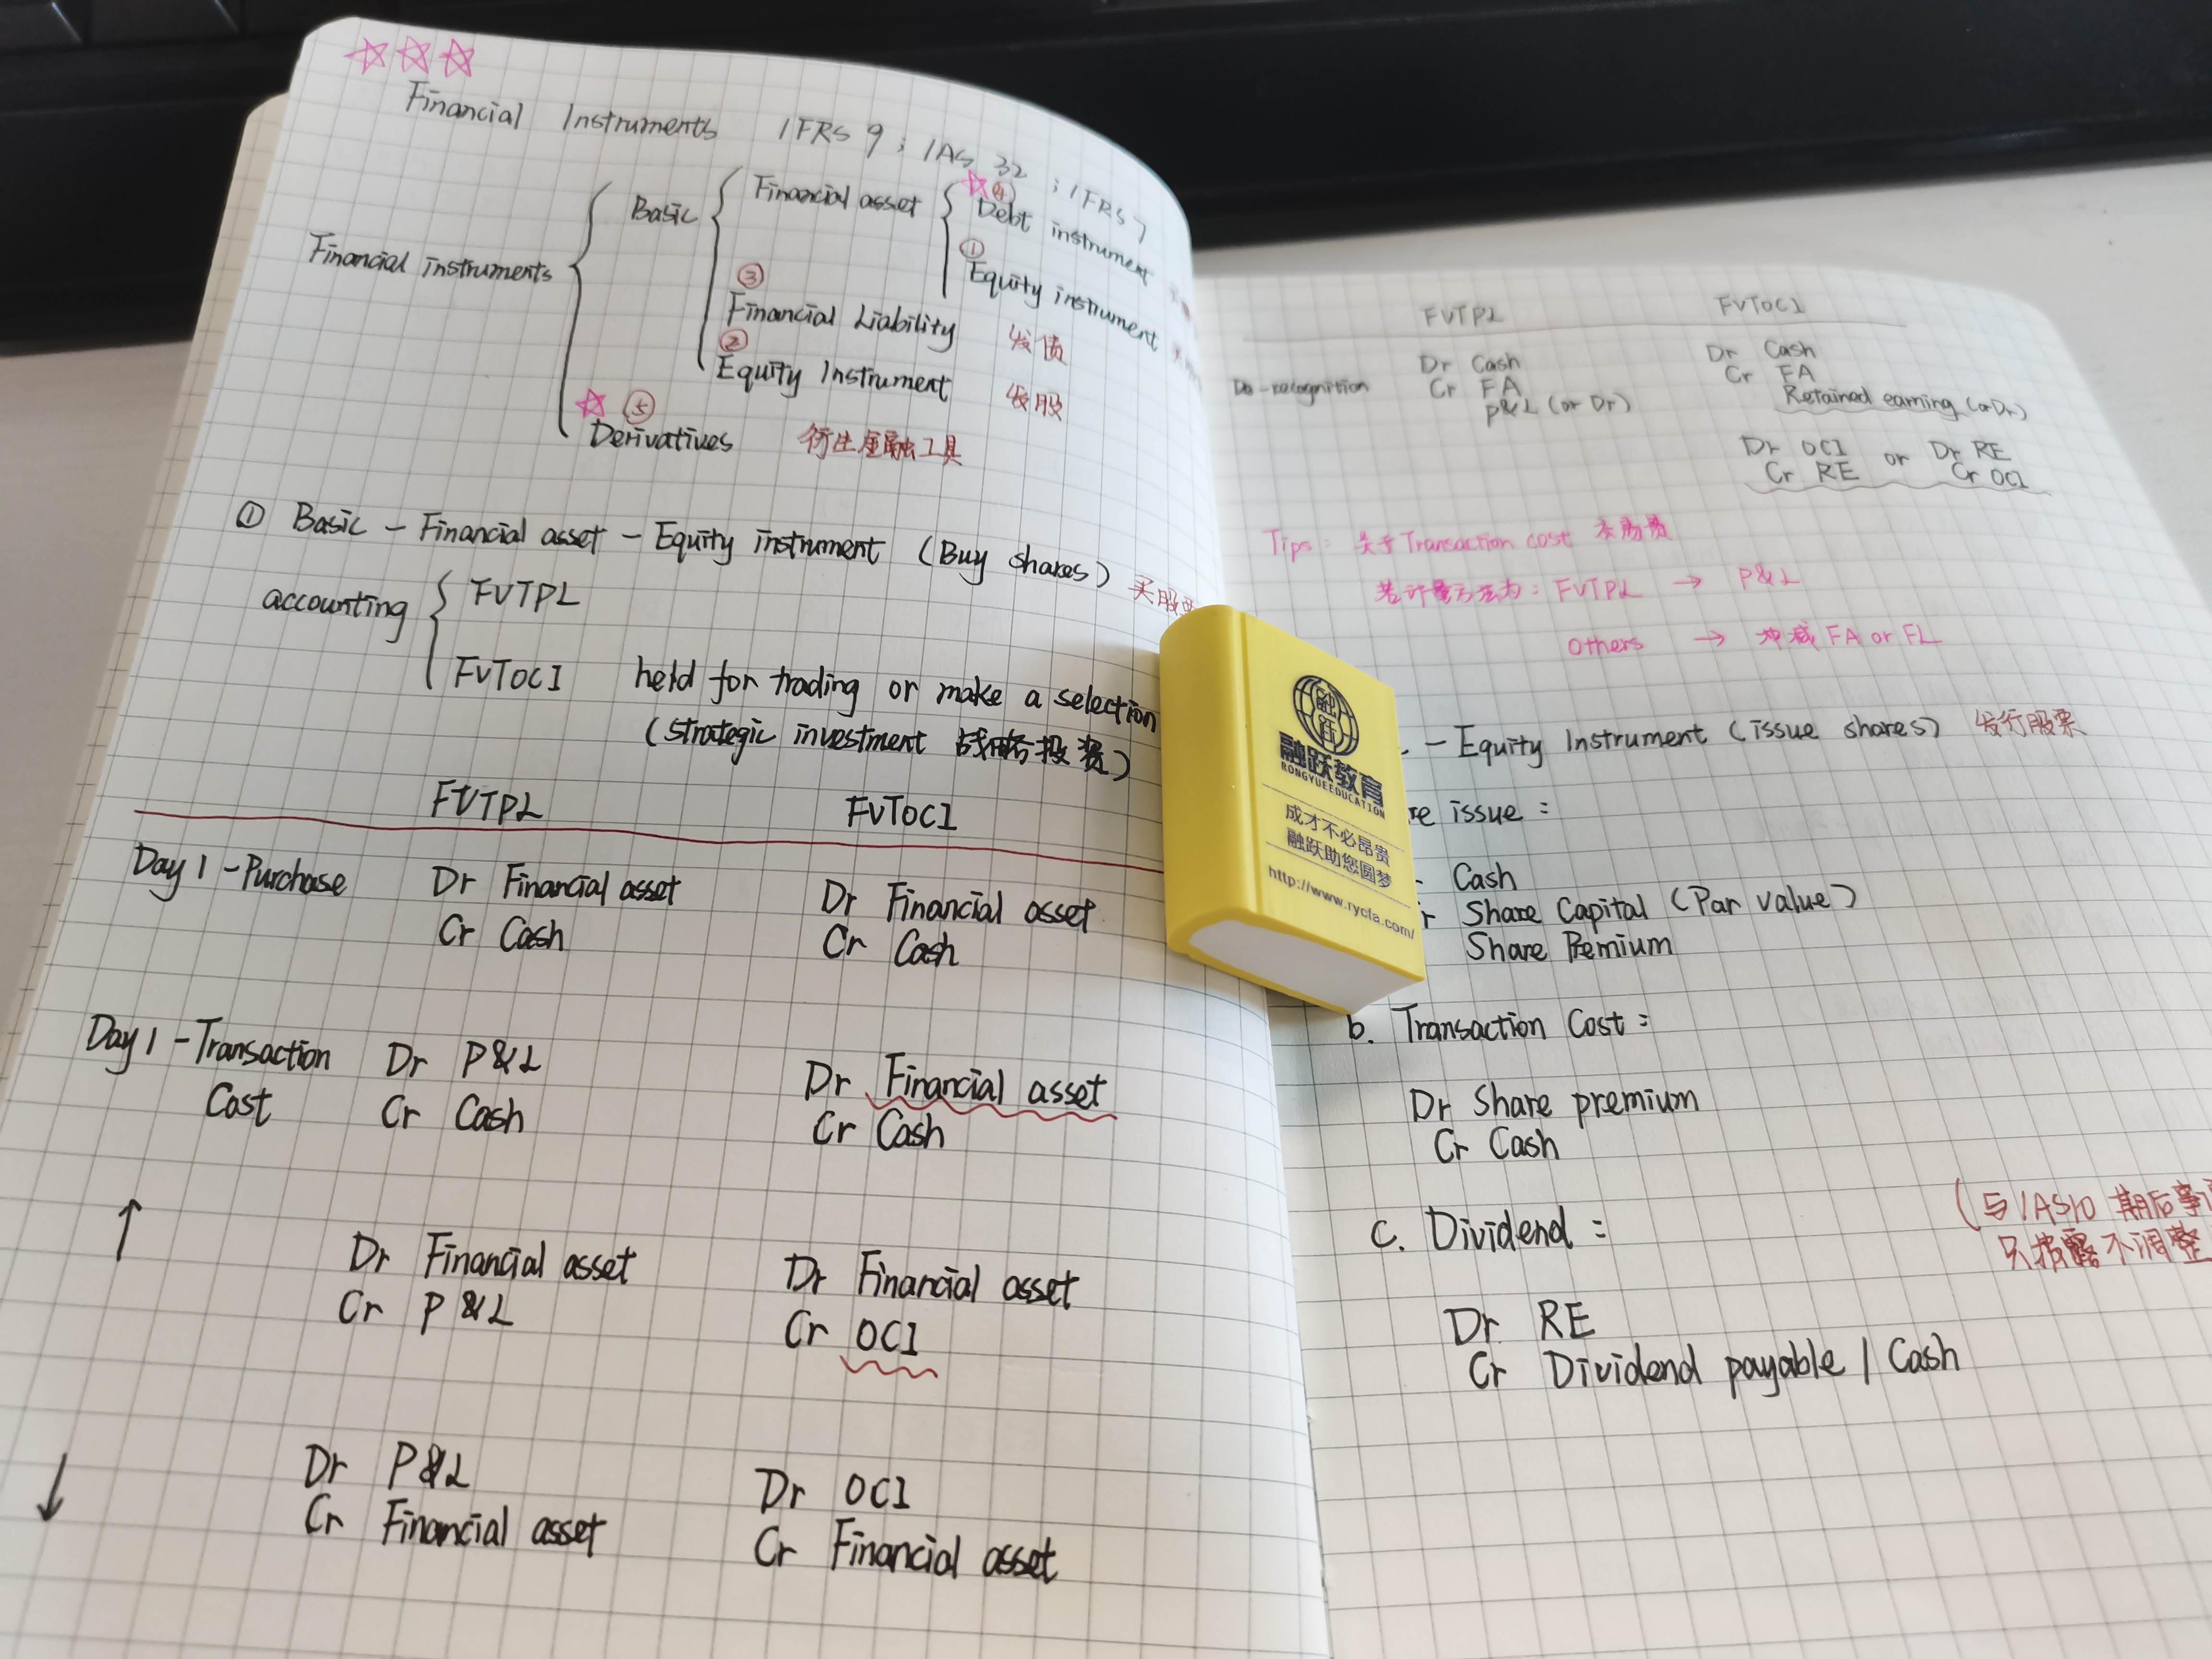 Financial Instruments IFRS 9 ; IAS 32 ; IFRS 7
Financial instruments
Basic
Financial asset
④
Debt instrument
①
Equity instrument
③
Financial Liability 发债
②
Equity Instrument 发股
⑤
Derivatives 衍生金融工具
① Basic - Financial asset - Equity instrument (Buy shares) 买股票
accounting
FVTPL
FVTOCI held for trading or make a selection
(strategic investment 战略投资)
FVTPL FVTOCI
Day 1 - Purchase Dr Financial asset Dr Financial asset
Cr Cash Cr Cash
Day 1 - Transaction Dr P&L Dr Financial asset
Cost Cr Cash Cr Cash
↑ Dr Financial asset Dr Financial asset
Cr P&L Cr OCI
↓ Dr P&L Dr OCI
Cr Financial asset Cr Financial asset
FVTPL FVTOCI
De-recognition Dr Cash Dr Cash
Cr FA Cr FA
P&L (or Dr) Retained earning (or Dr)
Dr OCI or Dr RE
Cr RE Cr OCI
Tips: 关于Transaction cost 交易费
若计量方法为: FVTPL → P&L
Others → 冲减 FA or FL
- Equity Instrument (issue shares) 发行股票
re issue :
Cash
r Share Capital (Par value)
Share Premium
b. Transaction Cost :
Dr Share premium
Cr Cash
c. Dividend :
(与IAS10 期后事
只披露不调整
Dr RE
Cr Dividend payable / Cash
融跃
融跃教育
RONGYUEEDUCATION
成才不必昂贵
融跃助您圆梦
http://www.rycfa.com/